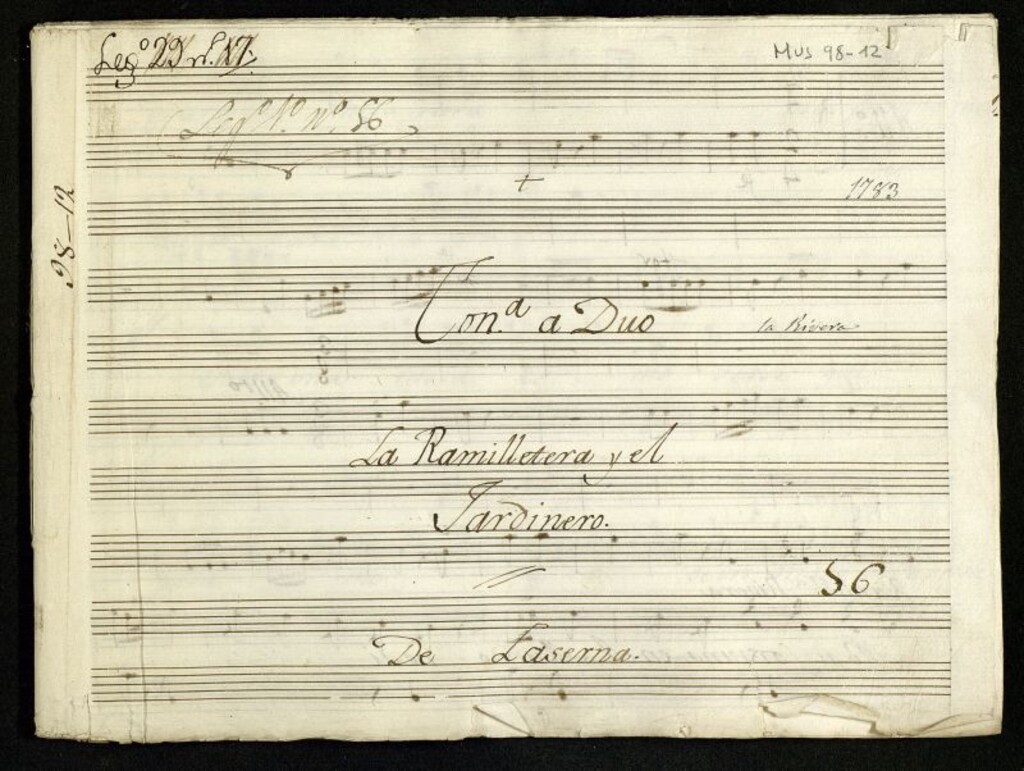 Leg.º 29 n.º 17.
Mus 98-12
Leg.º 1.º n.º 56
+
1783
98-12
Ton.ª a Duo
la Rivera
La Ramilletera y el
Jardinero.
56
De Laserna.